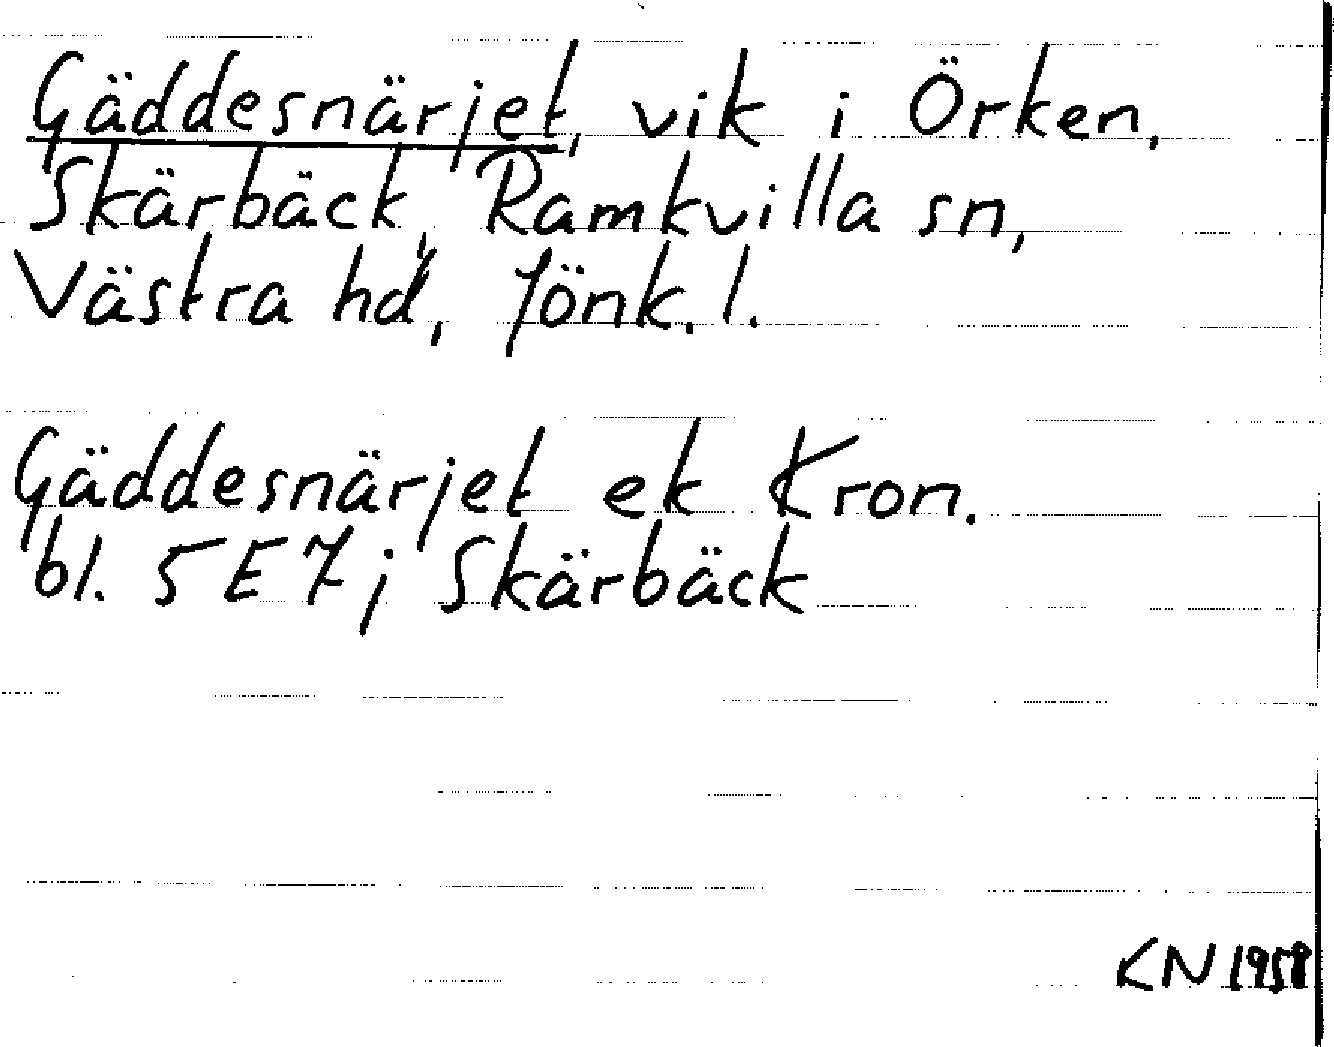 Gäddesnärjet, vik i Örken,
Skärbäck, Ramkvilla sn,
Västra hd, Jönk. l.
Gäddesnärjet ek Kron.
bl. 5 E 7; Skärbäck
KN 1958